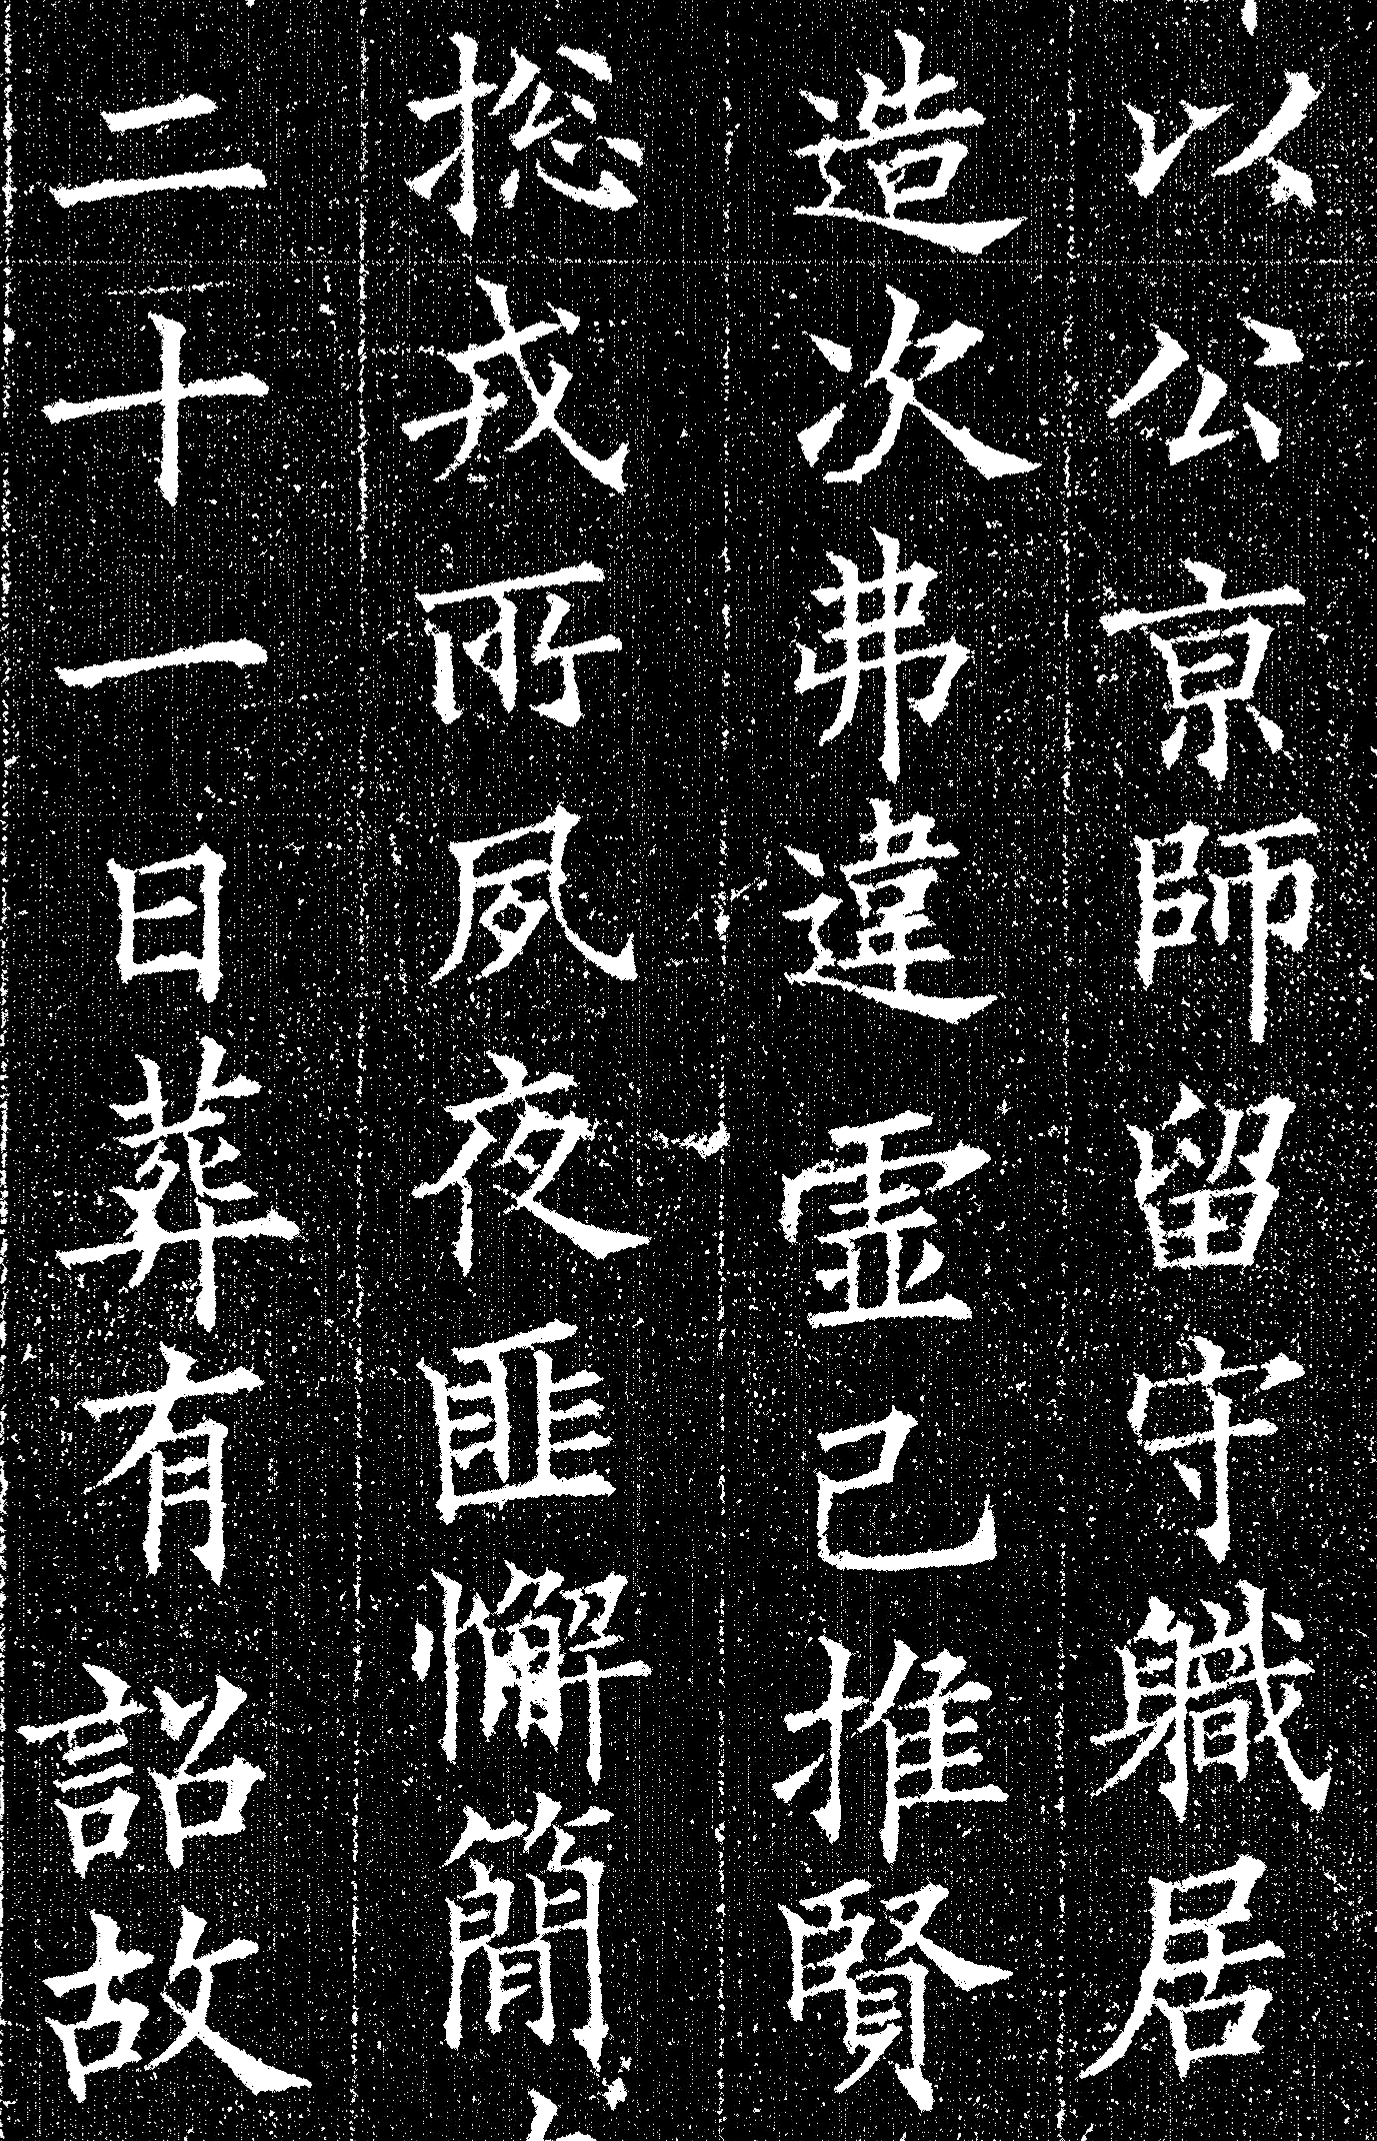 以公京師留守職居
造次弗違虛己推賢
揔戎所夙夜匪懈簡
二十一日葬有詔故